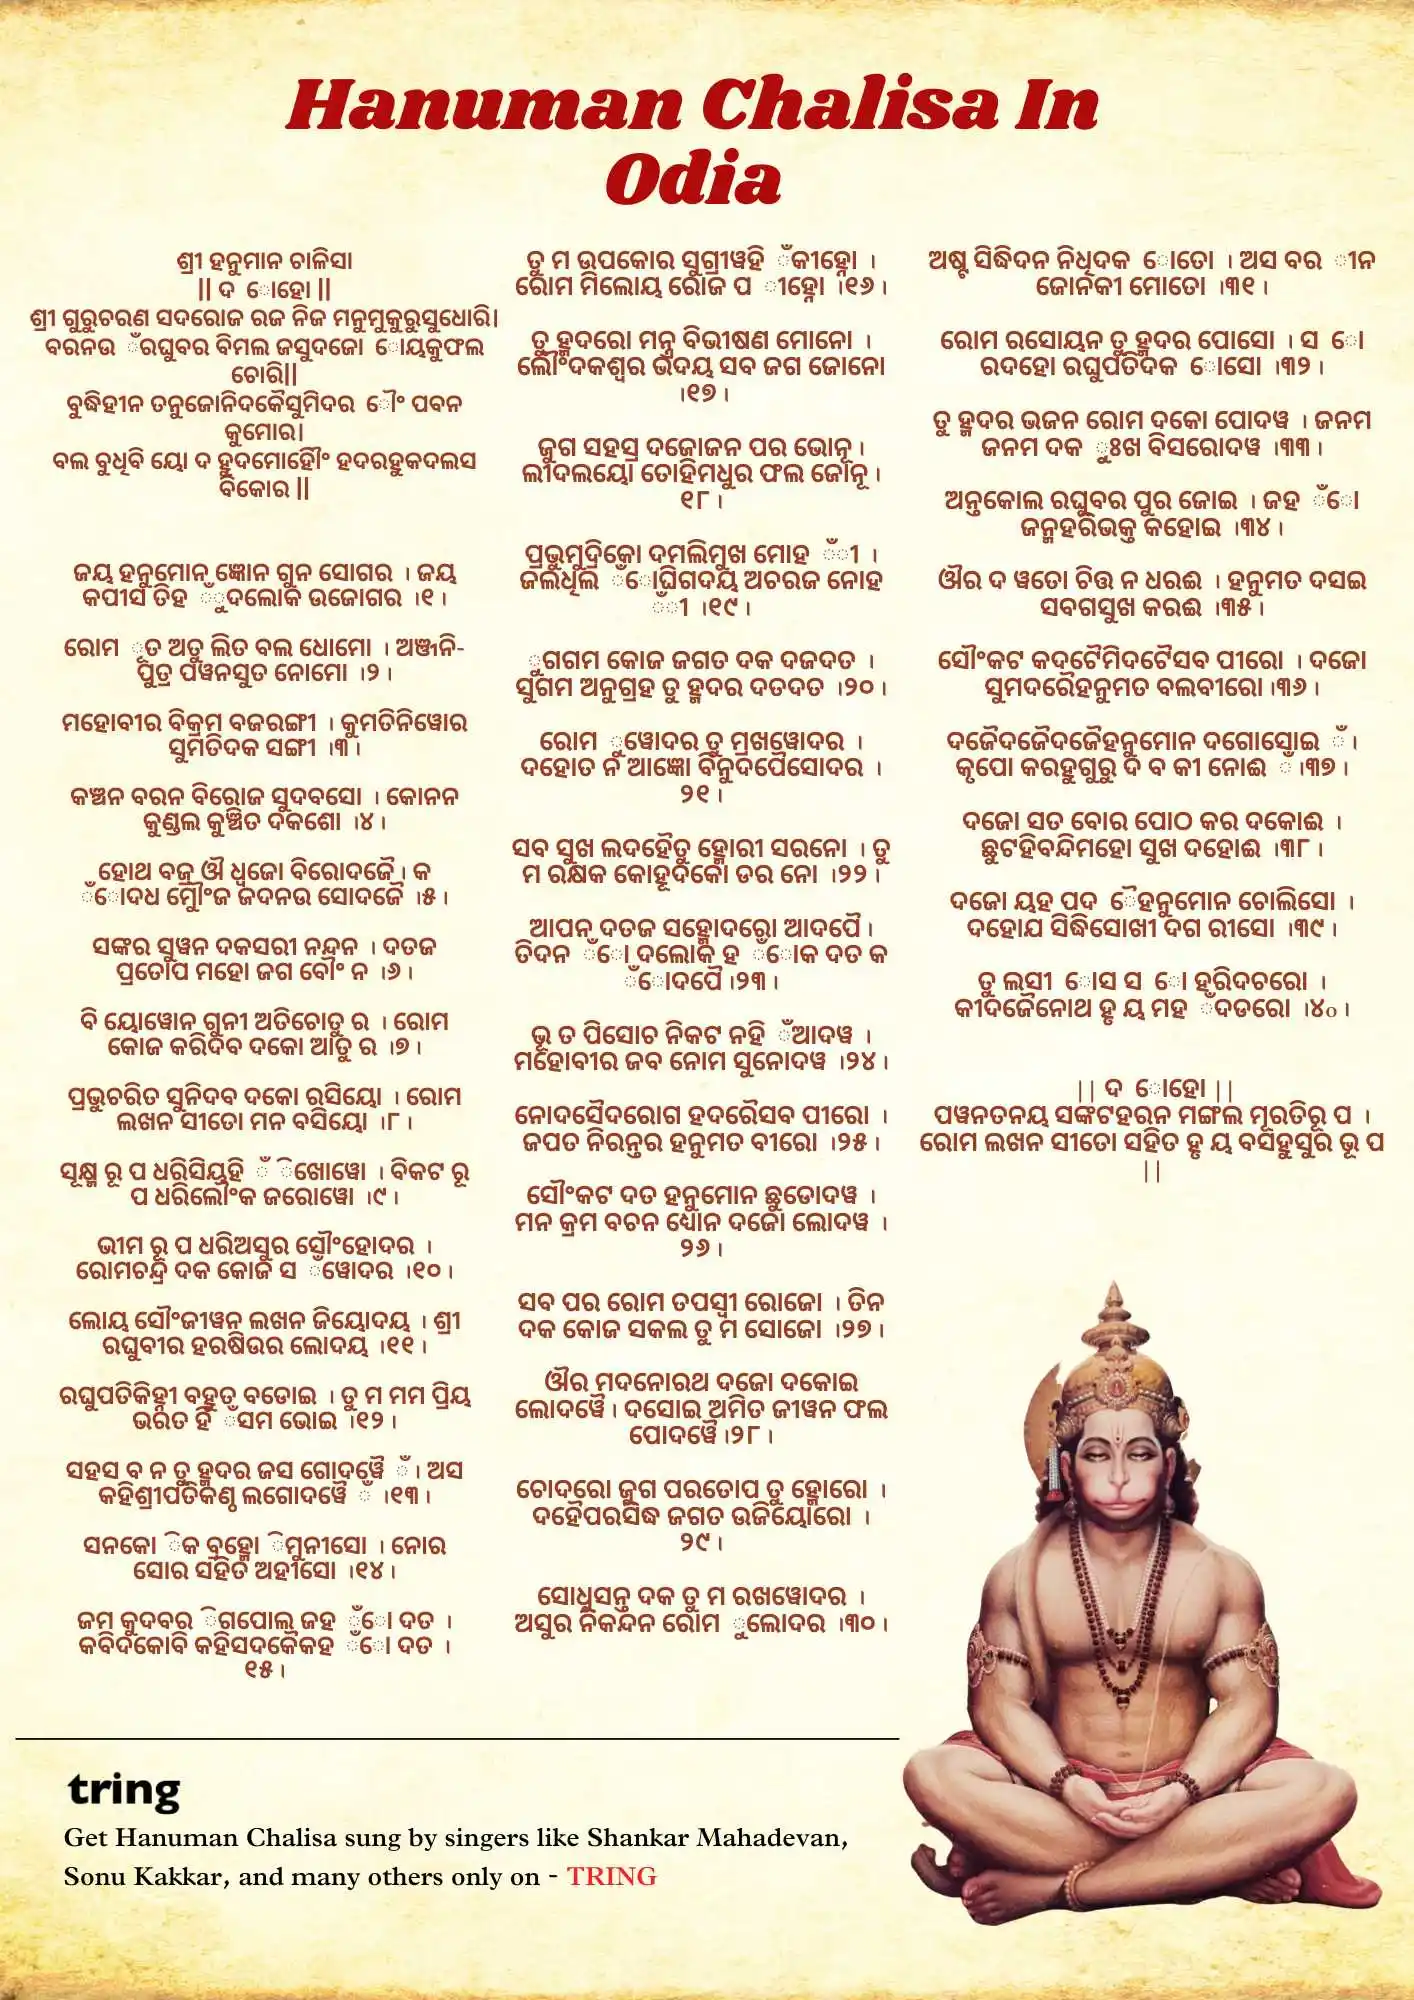 Hanuman Chalisa In
Odia
ଶ୍ରୀ ହନୁମାନ ଚାଳିସା
|| ଦ ୋହୋ ||
ଶ୍ରୀ ଗୁରୁଚରଣ ସଦରୋଜ ରଜ ନିଜ ମନୁମୁକୁରୁସୁଧୋରି।
ବରନଉ ଁରଘୁବର ବିମଲ ଜସୁଦଜୋ ୋୟକୁଫଲ
ଚୋରି||
ବୁଦ୍ଧିହୀନ ତନୁଜୋନିଦକୈସୁମିଦର ୌଂ ପବନ
କୁମୋର।
ବଲ ବୁଧିବି ୟୋ ଦ ହୁଦମୋହୌିଂ ହଦରହୁକଦଲସ
ବିକୋର ||
ଜୟ ହନୁମୋନ ଜ୍ଞୋନ ଗୁନ ସୋଗର । ଜୟ
କପୀସ ତିହ ଁୁଦଲୋକ ଉଜୋଗର ।୧।
ରୋମ ୂତ ଅତୁ ଲିତ ବଲ ଧୋମୋ । ଅଞ୍ଜନି-
ପୁତ୍ର ପୱନସୁତ ନୋମୋ ।୨।
ମହୋବୀର ବିକ୍ରମ ବଜରଙ୍ଗୀ । କୁମତିନିୱୋର
ସୁମତିଦକ ସଙ୍ଗୀ ।୩।
କଞ୍ଚନ ବରନ ବିରୋଜ ସୁଦବସୋ । କୋନନ
କୁଣ୍ଡଲ କୁଞ୍ଚିତ ଦକଶୋ ।୪।
ହୋଥ ବଜ୍ର ଔ ଧ୍ୱଜୋ ବିରୋଦଜୈ। କ
ଁୋଦଧ ମୁୌଂଜ ଜଦନଉ ସୋଦଜୈ ।୫।
ସଙ୍କର ସୁୱନ ଦକସରୀ ନନ୍ଦନ । ଦତଜ
ପ୍ରତୋପ ମହୋ ଜଗ ବୌଂ ନ ।୬।
ବି ୟୋୱୋନ ଗୁନୀ ଅତିଚୋତୁ ର । ରୋମ
କୋଜ କରିଦବ ଦକୋ ଆତୁ ର ।୭।
ପ୍ରଭୁଚରିତ ସୁନିଦବ ଦକୋ ରସିୟୋ । ରୋମ
ଲଖନ ସୀତୋ ମନ ବସିୟୋ ।୮।
ସୂକ୍ଷ୍ମ ରୂ ପ ଧରିସିୟହି ଁ ିଖୋୱୋ । ବିକଟ ରୂ
ପ ଧରିଲୌଂକ ଜରୋୱୋ ।୯।
ଭୀମ ରୂ ପ ଧରିଅସୁର ସୌଂହୋଦର ।
ରୋମଚନ୍ଦ୍ର ଦକ କୋଜ ସ ଁୱୋଦର ।୧୦।
ଲୋୟ ସୌଂଜୀୱନ ଲଖନ ଜିୟୋଦୟ । ଶ୍ରୀ
ରଘୁବୀର ହରଷିଉର ଲୋଦୟ ।୧୧।
ରଘୁପତିକିହ୍ନୀ ବହୁତ ବଡୋଇ । ତୁ ମ ମମ ପ୍ରିୟ
ଭରତ ହି ଁସମ ଭୋଇ ।୧୨।
ସହସ ବ ନ ତୁ ହ୍ମଦର ଜସ ଗୋଦୱୈ ଁ। ଅସ
କହିଶ୍ରୀପତିକଣ୍ଠ ଲଗୋଦୱୈ ଁ ।୧୩।
ସନକୋ ିକ ବ୍ରହ୍ମୋ ିମୁନୀସୋ । ନୋର
ସୋର ସହିତ ଅହୀସୋ ।୧୪।
ଜମ କୁଦବର ିଗପୋଲ ଜହ ଁୋ ଦତ ।
କବିଦକୋବି କହିସଦକୈକହ ଁୋ ଦତ ।
୧୫।
ତୁ ମ ଉପକୋର ସୁଗ୍ରୀୱହି ଁକୀହ୍ନୋ ।
ରୋମ ମିଲୋୟ ରୋଜ ପ ୀହ୍ନୋ ।୧୬।
ତୁ ହ୍ମଦରୋ ମନ୍ତ୍ର ବିଭୀଷଣ ମୋନୋ ।
ଲୌଂଦକଶ୍ୱର ଭଦୟ ସବ ଜଗ ଜୋନୋ
।୧୭।
ଜୁଗ ସହସ୍ର ଦଜୋଜନ ପର ଭୋନୂ।
ଲୀଦଲୟୋ ତୋହିମଧୁର ଫଲ ଜୋନୂ।
୧୮।
ପ୍ରଭୁମୁଦ୍ରିକୋ ଦମଲିମୁଖ ମୋହ ଁୀ ।
ଜଲଧିଲ ଁୋଘିଗଦୟ ଅଚରଜ ନୋହ
ଁୀ ।୧୯।
ୁଗଗମ କୋଜ ଜଗତ ଦକ ଦଜଦତ ।
ସୁଗମ ଅନୁଗ୍ରହ ତୁ ହ୍ମଦର ଦତଦତ ।୨୦।
ରୋମ ୁୱୋଦର ତୁ ମ୍ରଖୱୋଦର ।
ଦହୋତ ନ ଆଜ୍ଞୋ ବିନୁଦପୈସୋଦର ।
୨୧।
ସବ ସୁଖ ଲଦହୈତୁ ହ୍ମୋରୀ ସରନୋ । ତୁ
ମ ରକ୍ଷକ କୋହୂଦକୋ ଡର ନୋ ।୨୨।
ଆପନ ଦତଜ ସହ୍ମୋଦରୋ ଆଦପୈ।
ତିଦନ ଁୋ ଦଲୋକ ହ ଁୋକ ଦତ କ
ଁୋଦପୈ।୨୩।
ଭୂ ତ ପିସୋଚ ନିକଟ ନହି ଁଆଦୱ ।
ମହୋବୀର ଜବ ନୋମ ସୁନୋଦୱ ।୨୪।
ନୋଦସୈଦରୋଗ ହଦରୈସବ ପୀରୋ ।
ଜପତ ନିରନ୍ତର ହନୁମତ ବୀରୋ ।୨୫।
ସୌଂକଟ ଦତ ହନୁମୋନ ଛୁଡୋଦୱ ।
ମନ କ୍ରମ ବଚନ ଧ୍ୟୋନ ଦଜୋ ଲୋଦୱ ।
୨୬।
ସବ ପର ରୋମ ତପସ୍ୱୀ ରୋଜୋ । ତିନ
ଦକ କୋଜ ସକଲ ତୁ ମ ସୋଜୋ ।୨୭।
ଔର ମଦନୋରଥ ଦଜୋ ଦକୋଇ
ଲୋଦୱୈ। ଦସୋଇ ଅମିତ ଜୀୱନ ଫଲ
ପୋଦୱୈ।୨୮।
ଚୋଦରୋ ଜୁଗ ପରତୋପ ତୁ ହ୍ମୋରୋ ।
ଦହୈପରସିଦ୍ଧ ଜଗତ ଉଜିୟୋରୋ ।
୨୯।
ସୋଧୁସନ୍ତ ଦକ ତୁ ମ ରଖୱୋଦର ।
ଅସୁର ନିକନ୍ଦନ ରୋମ ୁଲୋଦର ।୩୦।
ଅଷ୍ଟ ସିଦ୍ଧିଦନ ନିଧିଦକ ୋତୋ । ଅସ ବର ୀନ
ଜୋନକୀ ମୋତୋ ।୩୧।
ରୋମ ରସୋୟନ ତୁ ହ୍ମଦର ପୋସୋ । ସ ୋ
ରଦହୋ ରଘୁପତିଦକ ୋସୋ ।୩୨।
ତୁ ହ୍ମଦର ଭଜନ ରୋମ ଦକୋ ପୋଦୱ । ଜନମ
ଜନମ ଦକ ୁଃଖ ବିସରୋଦୱ ।୩୩।
ଅନ୍ତକୋଲ ରଘୁବର ପୁର ଜୋଇ । ଜହ ଁୋ
ଜନ୍ମହରିଭକ୍ତ କହୋଇ ।୩୪।
ଔର ଦ ୱତୋ ଚିତ୍ତ ନ ଧରଈ । ହନୁମତ ଦସଇ
ସବଗସୁଖ କରଈ ।୩୫।
ସୌଂକଟ କଦଟୈମିଦଟୈସବ ପୀରୋ । ଦଜୋ
ସୁମଦରୈହନୁମତ ବଲବୀରୋ।୩୬।
ଦଜୈଦଜୈଦଜୈହନୁମୋନ ଦଗୋସୋଇ ଁ।
କୃପୋ କରହୁଗୁରୁ ଦ ବ କୀ ନୋଈ ଁ।୩୭।
ଦଜୋ ସତ ବୋର ପୋଠ କର ଦକୋଈ ।
ଛୁଟହିବନ୍ଦିମହୋ ସୁଖ ଦହୋଈ ।୩୮।
ଦଜୋ ୟହ ପଦ ୈହନୁମୋନ ଚୋଲିସୋ ।
ଦହୋଯ ସିଦ୍ଧିସୋଖୀ ଦଗ ରୀସୋ ।୩୯।
ତୁ ଲସୀ ୋସ ସ ୋ ହରିଦଚରୋ ।
କୀଦଜୈନୋଥ ହୃ ୟ ମହ ଁଦଡରୋ ।୪୦।
|| ଦ ୋହୋ ||
ପୱନତନୟ ସଙ୍କଟହରନ ମଙ୍ଗଲ ମୂରତିରୂ ପ ।
ରୋମ ଲଖନ ସୀତୋ ସହିତ ହୃ ୟ ବସହୁସୁର ଭୂ ପ
||
tring
Get Hanuman Chalisa sung by singers like Shankar Mahadevan,
Sonu Kakkar, and many others only on - TRING